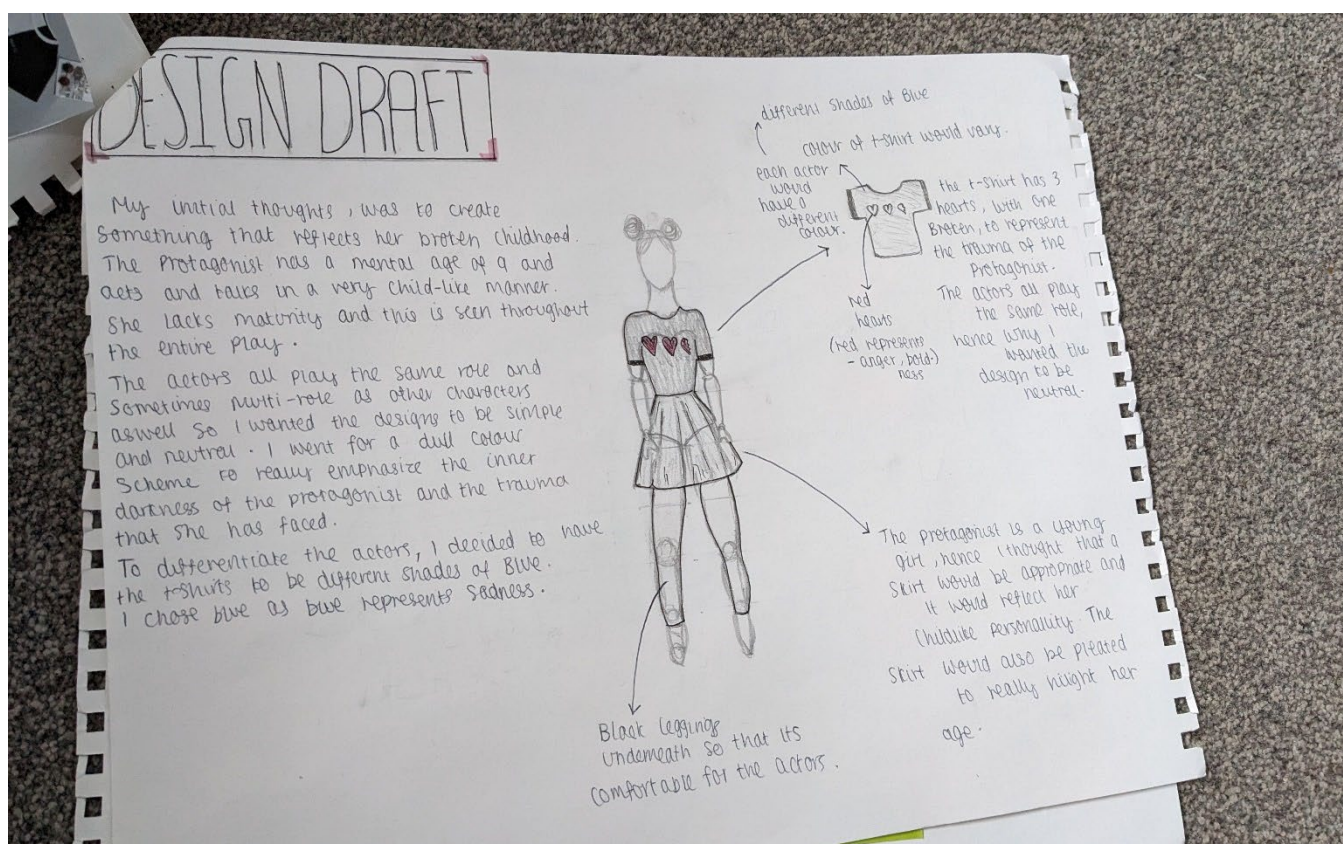 DESIGN DRAFT
My initial thoughts, was to create
something that reflects her broken childhood.
The Protagonist has a mental age of 9 and
acts and talks in a very child-like manner.
She lacks maturity and this is seen throughout
the entire play.
The actors all play the same role and
sometimes multi-role as other characters
aswell so I wanted the designs to be simple
and neutral. I went for a dull colour
scheme to really emphasize the inner
darkness of the protagonist and the trauma
that she has faced.
To differentiate the actors, I decided to have
the t-shirts to be different shades of Blue.
I chose blue as blue represents sadness.
different shades of Blue
colour of t-shirt would vary.
each actor
would
have a
different
colour.
the t-shirt has 3
hearts, with one
Broken, to represent
the trauma of the
Protagonist.
The actors all play
the same role,
hence why I
wanted the
design to be
neutral.
red
hearts
(red represents
- anger, bold-)
ness
The protagonist is a young
girl, hence I thought that a
skirt would be appropriate and
it would reflect her
childlike personality. The
skirt would also be pleated
to really hilight her
age.
Black leggings
underneath so that its
comfortable for the actors.